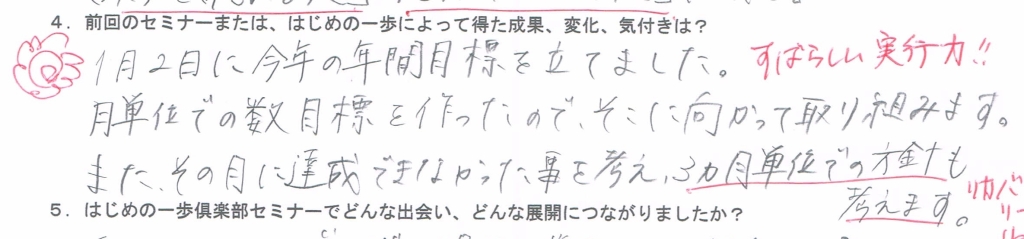 4．前回のセミナーまたは、はじめの一歩によって得た成果、変化、気付きは？
1月2日に今年の年間目標を立てました。 すばらしい実行力!!
月単位での数目標を作ったので、そこに向かって取り組みます。
また、その月に達成できなかった事を考え、3ヵ月単位での方針も
考えます。 リカバ
リー
5．はじめの一歩倶楽部セミナーでどんな出会い、どんな展開につながりましたか？